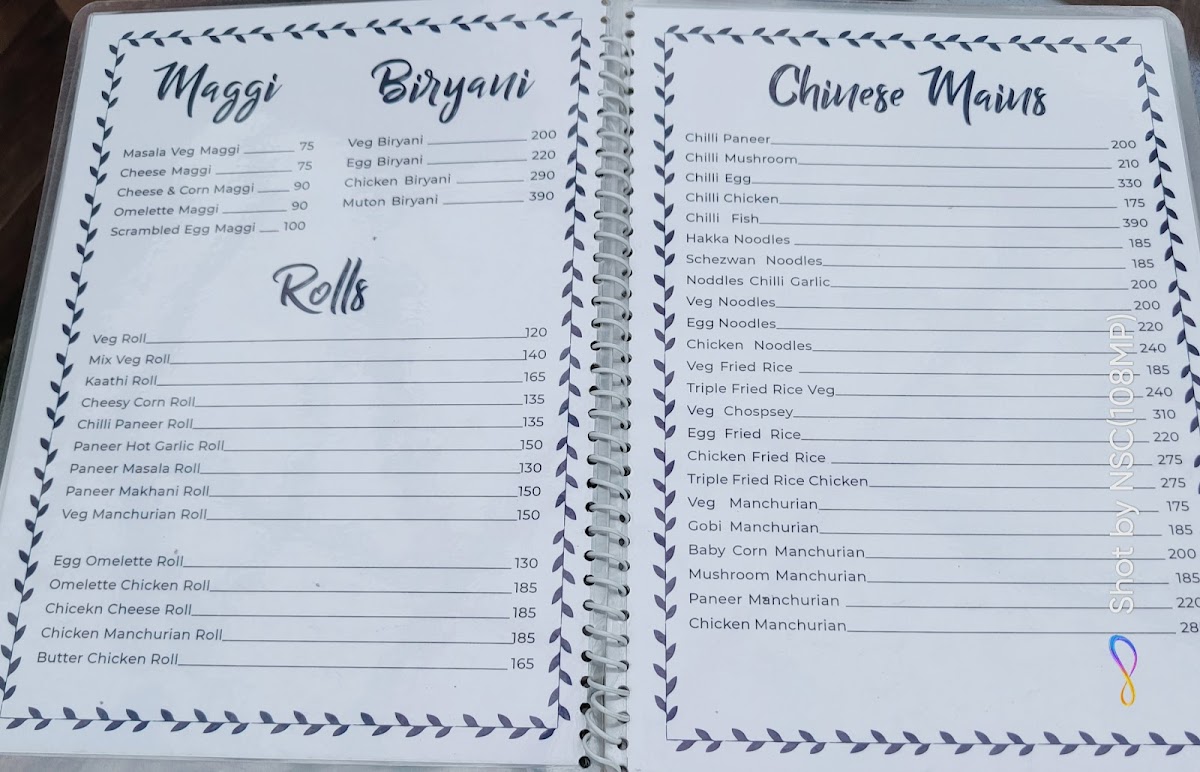 Maggi
Masala Veg Maggi 75
Cheese Maggi 75
Cheese & Corn Maggi 90
Omelette Maggi 90
Scrambled Egg Maggi 100
Biryani
Veg Biryani 200
Egg Biryani 220
Chicken Biryani 290
Muton Biryani 390
Rolls
Veg Roll 120
Mix Veg Roll 140
Kaathi Roll 165
Cheesy Corn Roll 135
Chilli Paneer Roll 135
Paneer Hot Garlic Roll 150
Paneer Masala Roll 130
Paneer Makhani Roll 150
Veg Manchurian Roll 150
Egg Omelette Roll 130
Omelette Chicken Roll 185
Chicekn Cheese Roll 185
Chicken Manchurian Roll 185
Butter Chicken Roll 165
Chinese Mains
Chilli Paneer 200
Chilli Mushroom 210
Chilli Egg 330
Chilli Chicken 175
Chilli Fish 390
Hakka Noodles 185
Schezwan Noodles 185
Noddles Chilli Garlic 200
Veg Noodles 200
Egg Noodles 220
Chicken Noodles 240
Veg Fried Rice 185
Triple Fried Rice Veg 240
Veg Chospsey 310
Egg Fried Rice 220
Chicken Fried Rice 275
Triple Fried Rice Chicken 275
Veg Manchurian 175
Gobi Manchurian 185
Baby Corn Manchurian 200
Mushroom Manchurian 185
Paneer Manchurian 220
Chicken Manchurian 28
Shot by NSC(108MP)